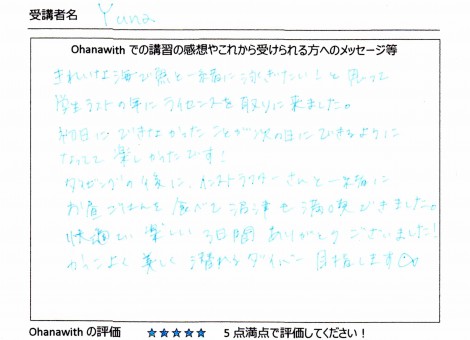 受講者名 Yuna
Ohanawith での講習の感想やこれから受けられる方へのメッセージ等
きれいな海で魚と一緒に泳ぎたい！と思って
学生ラストの年にライセンスを取りに来ました。
初日にできなかったことが次の日にできるように
なってて楽しかったです！
ダイビングの後に、インストラクターさんと一緒に
お昼ごはんを食べて沼津も満喫できました。
快適で楽しい3日間ありがとうございました！
かっこよく美しく潜れるダイバー目指します
Ohanawith の評価 ★★★★★ 5 点満点で評価してください！